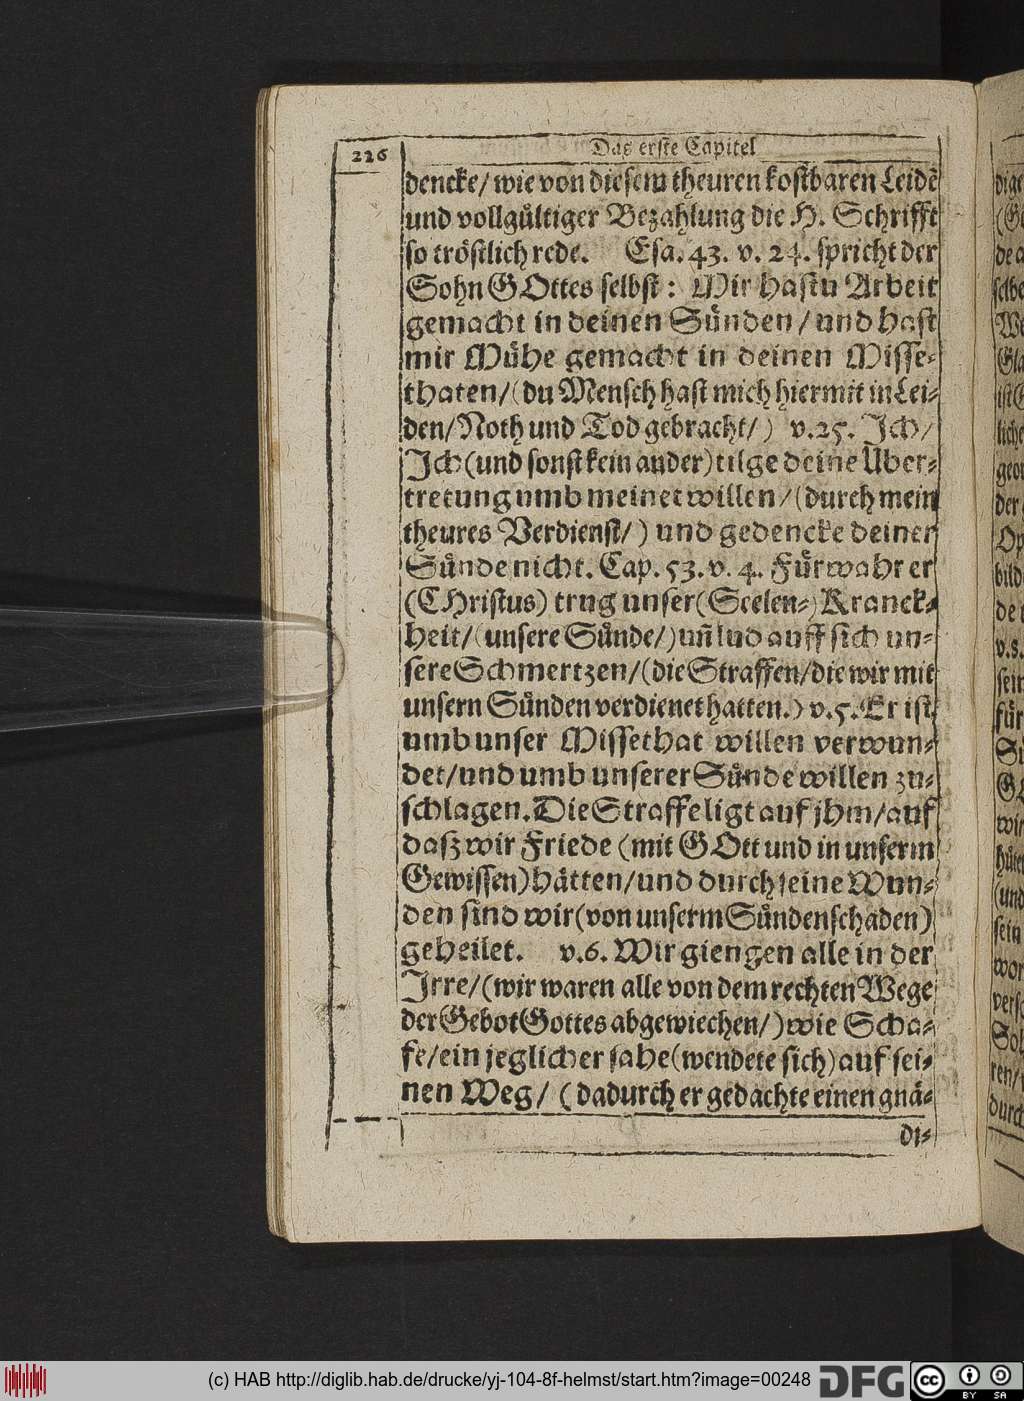 226
Das erste Capitel
dencke/ wie von diesem theuren kostbaren Leidẽ
und vollgültiger Bezahlung die H. Schrifft
so tröstlich rede. Esa. 43. v. 24. spricht der
Sohn GOttes selbst: Mir hastu Arbeit
gemacht in deinen Sünden/ und hast
mir Mühe gemacht in deinen Misse-
thaten/ (du Mensch hast mich hiermit in Lei-
den/ Noth und Tod gebracht/) v. 25. Ich/
Ich (und sonst kein ander) tilge deine Uber-
tretung umb meinet willen/ (durch mein
theures Verdienst/) und gedencke deiner
Sünde nicht. Cap. 53. v. 4. Fürwahr er
(CHristus) trug unser (Seelen-) Kranck-
heit/ (unsere Sünde/) uñ lud auff sich un-
sere Schmertzen/ (die Straffen/ die wir mit
unsern Sünden verdienet hatten.) v. 5. Er ist
umb unser Missethat willen verwun-
det/ und umb unserer Sünde willen zu-
schlagen. Die Straffe ligt auf jhm/ auf
daß wir Friede (mit GOtt und in unserm
Gewissen) hätten/ und durch seine Wun-
den sind wir (von unserm Sündenschaden)
geheilet. v. 6. Wir giengen alle in der
Irre/ (wir waren alle von dem rechten Wege
der Gebot Gottes abgewiechen/) wie Scha-
fe/ ein jeglicher sahe (wendete sich) auf sei-
nen Weg/ (dadurch er gedachte einen gnä-
di-
(c) HAB http://diglib.hab.de/drucke/yj-104-8f-helmst/start.htm?image=00248
DFG
cc
BY SA